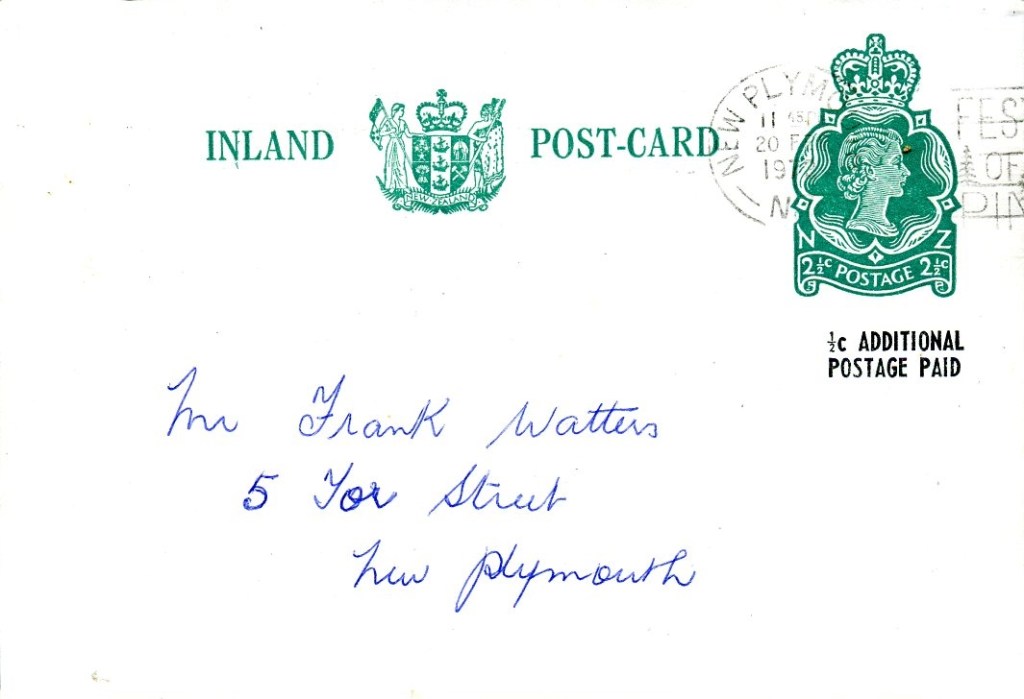 INLAND POST-CARD
NEW ZEALAND
NEW PLYMO
11
20 F
197
N
FES
OF
PIN
N Z
2½c POSTAGE 2½c
½c ADDITIONAL
POSTAGE PAID
Mr Frank Watters
5 Tor Street
New Plymouth